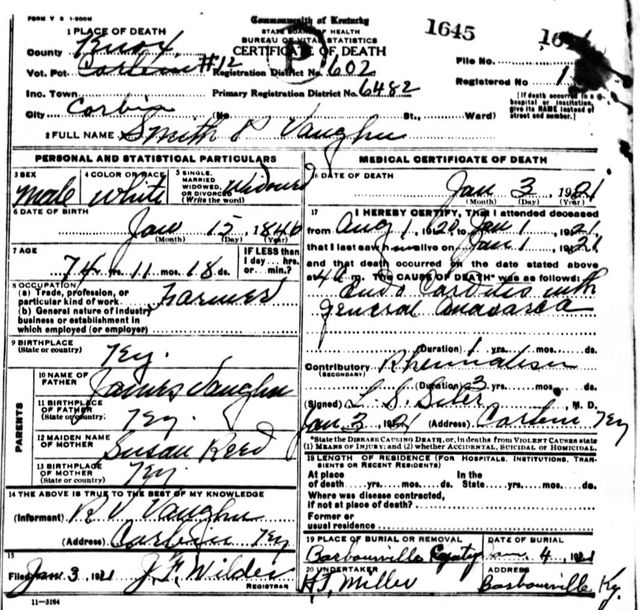 FORM V S 1-500M
Commonwealth of Kentucky
STATE BOARD OF HEALTH
BUREAU OF VITAL STATISTICS
CERTIFICATE OF DEATH
1645
1 PLACE OF DEATH
County Knox
Vot. Pct. Corbin #12 Registration District No. 602
File No.
Inc. Town Primary Registration District No. 6482
Registered No. 1
City Corbin (No. St., Ward)
(If death occurred in a hospital or institution, give its NAME instead of street and number.)
2 FULL NAME Smith P Vaughn
PERSONAL AND STATISTICAL PARTICULARS
3 SEX male
4 COLOR OR RACE white
5 SINGLE, MARRIED WIDOWED, OR DIVORCED (Write the word) Widowed
6 DATE OF BIRTH Jan 15 1846
(Month) (Day) (Year)
7 AGE 74 yrs. 11 mos. 18 ds.
IF LESS than 1 day... hrs. or... min.?
8 OCCUPATION
(a) Trade, profession, or particular kind of work Farmer
(b) General nature of industry business or establishment in which employed (or employer)
9 BIRTHPLACE
(State or country) Ky.
PARENTS
10 NAME OF FATHER James Vaughn
11 BIRTHPLACE OF FATHER
(State or country) Ky.
12 MAIDEN NAME OF MOTHER Susan Reed
13 BIRTHPLACE OF MOTHER
(State or country) Ky.
14 THE ABOVE IS TRUE TO THE BEST OF MY KNOWLEDGE
(Informant) R V Vaughn
(Address) Corbin Ky
15
Filed Jan 3 1921 J. F. Wilder
REGISTRAR
11-3184
MEDICAL CERTIFICATE OF DEATH
16 DATE OF DEATH
Jan 3 1921
(Month) (Day) (Year)
17 I HEREBY CERTIFY, That I attended deceased
from Aug 1 1920 to Jan 1 1921
that I last saw him alive on Jan 1 1921
and that death occurred on the date stated above
at 4 a m. The CAUSE OF DEATH* was as follows:
Endo Carditis with
general Anasarca
(Duration) 1 yrs. mos. ds.
Contributory Rheumatism
(SECONDARY)
(Duration) 3 yrs. mos. ds.
(Signed) L. S. Siler, M. D.
Jan. 3 1921 (Address) Corbin Ky
*State the DISEASE CAUSING DEATH, or, in deaths from VIOLENT CAUSES state (1) MEANS OF INJURY; and (2) whether ACCIDENTAL, SUICIDAL or HOMICIDAL.
18 LENGTH OF RESIDENCE (FOR HOSPITALS, INSTITUTIONS, TRANSIENTS OR RECENT RESIDENTS)
At place of death yrs. mos. ds. In the State yrs. mos. ds.
Where was disease contracted, if not at place of death?
Former or usual residence
19 PLACE OF BURIAL OR REMOVAL
Barbourville
DATE OF BURIAL
Jan 4 1921
20 UNDERTAKER
H J Miller
ADDRESS
Barbourville Ky.